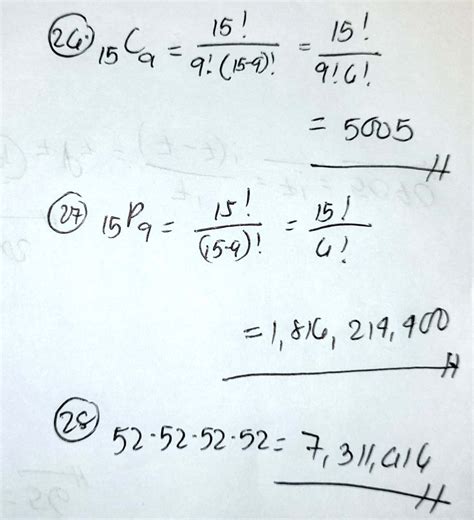 26. 15C9 = 15!/9!(15-9)! = 15!/9!6!
= 5005
27 15P9 = 15!/(15-9)! = 15!/6!
= 1,816,214,400
28 52·52·52·52 = 7,311,616